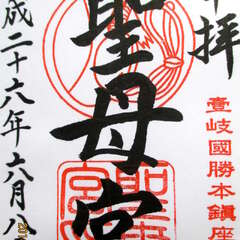 奉拝
壹岐國勝本鎮座
聖母宮
成二十六年六月八日
聖母宮